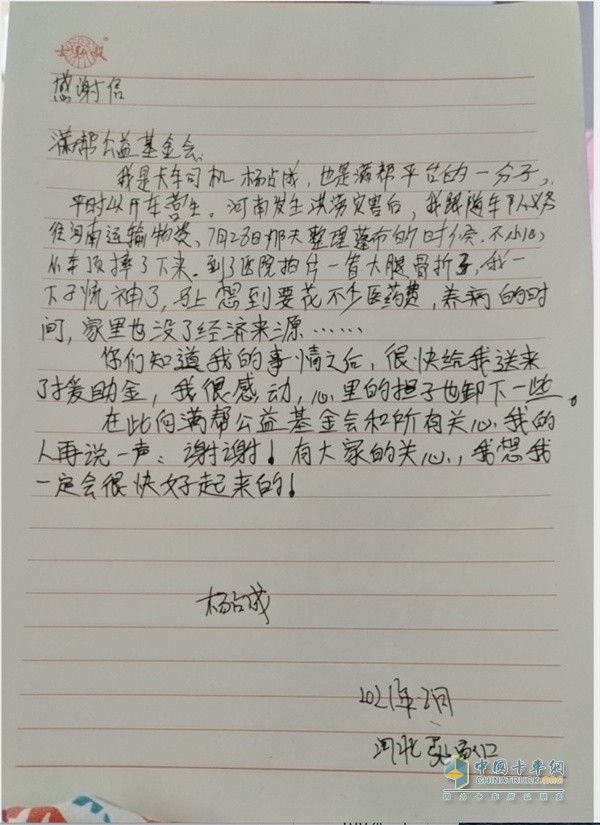 感谢信
满帮公益基金会
我是卡车司机 杨占成，也是满帮平台的一分子，
平时以开车营生。河南发生洪涝灾害后，我跟随车队义务
往河南运输物资，7月23日那天整理蓬布的时候，不小心
从车顶摔了下来。到了医院拍片一看大腿骨折了，我一
下子慌神了，马上想到要花不少医药费，养病的时
间，家里也没了经济来源……
你们知道我的事情之后，很快给我送来
了援助金，我很感动，心里的担子也卸下一些。
在此向满帮公益基金会和所有关心我的
人再说一声：谢谢！有大家的关心，我想我
一定会很快好起来的！
杨占成
2021年 月
河北
中国卡车网
CHINATRUCK.ORG